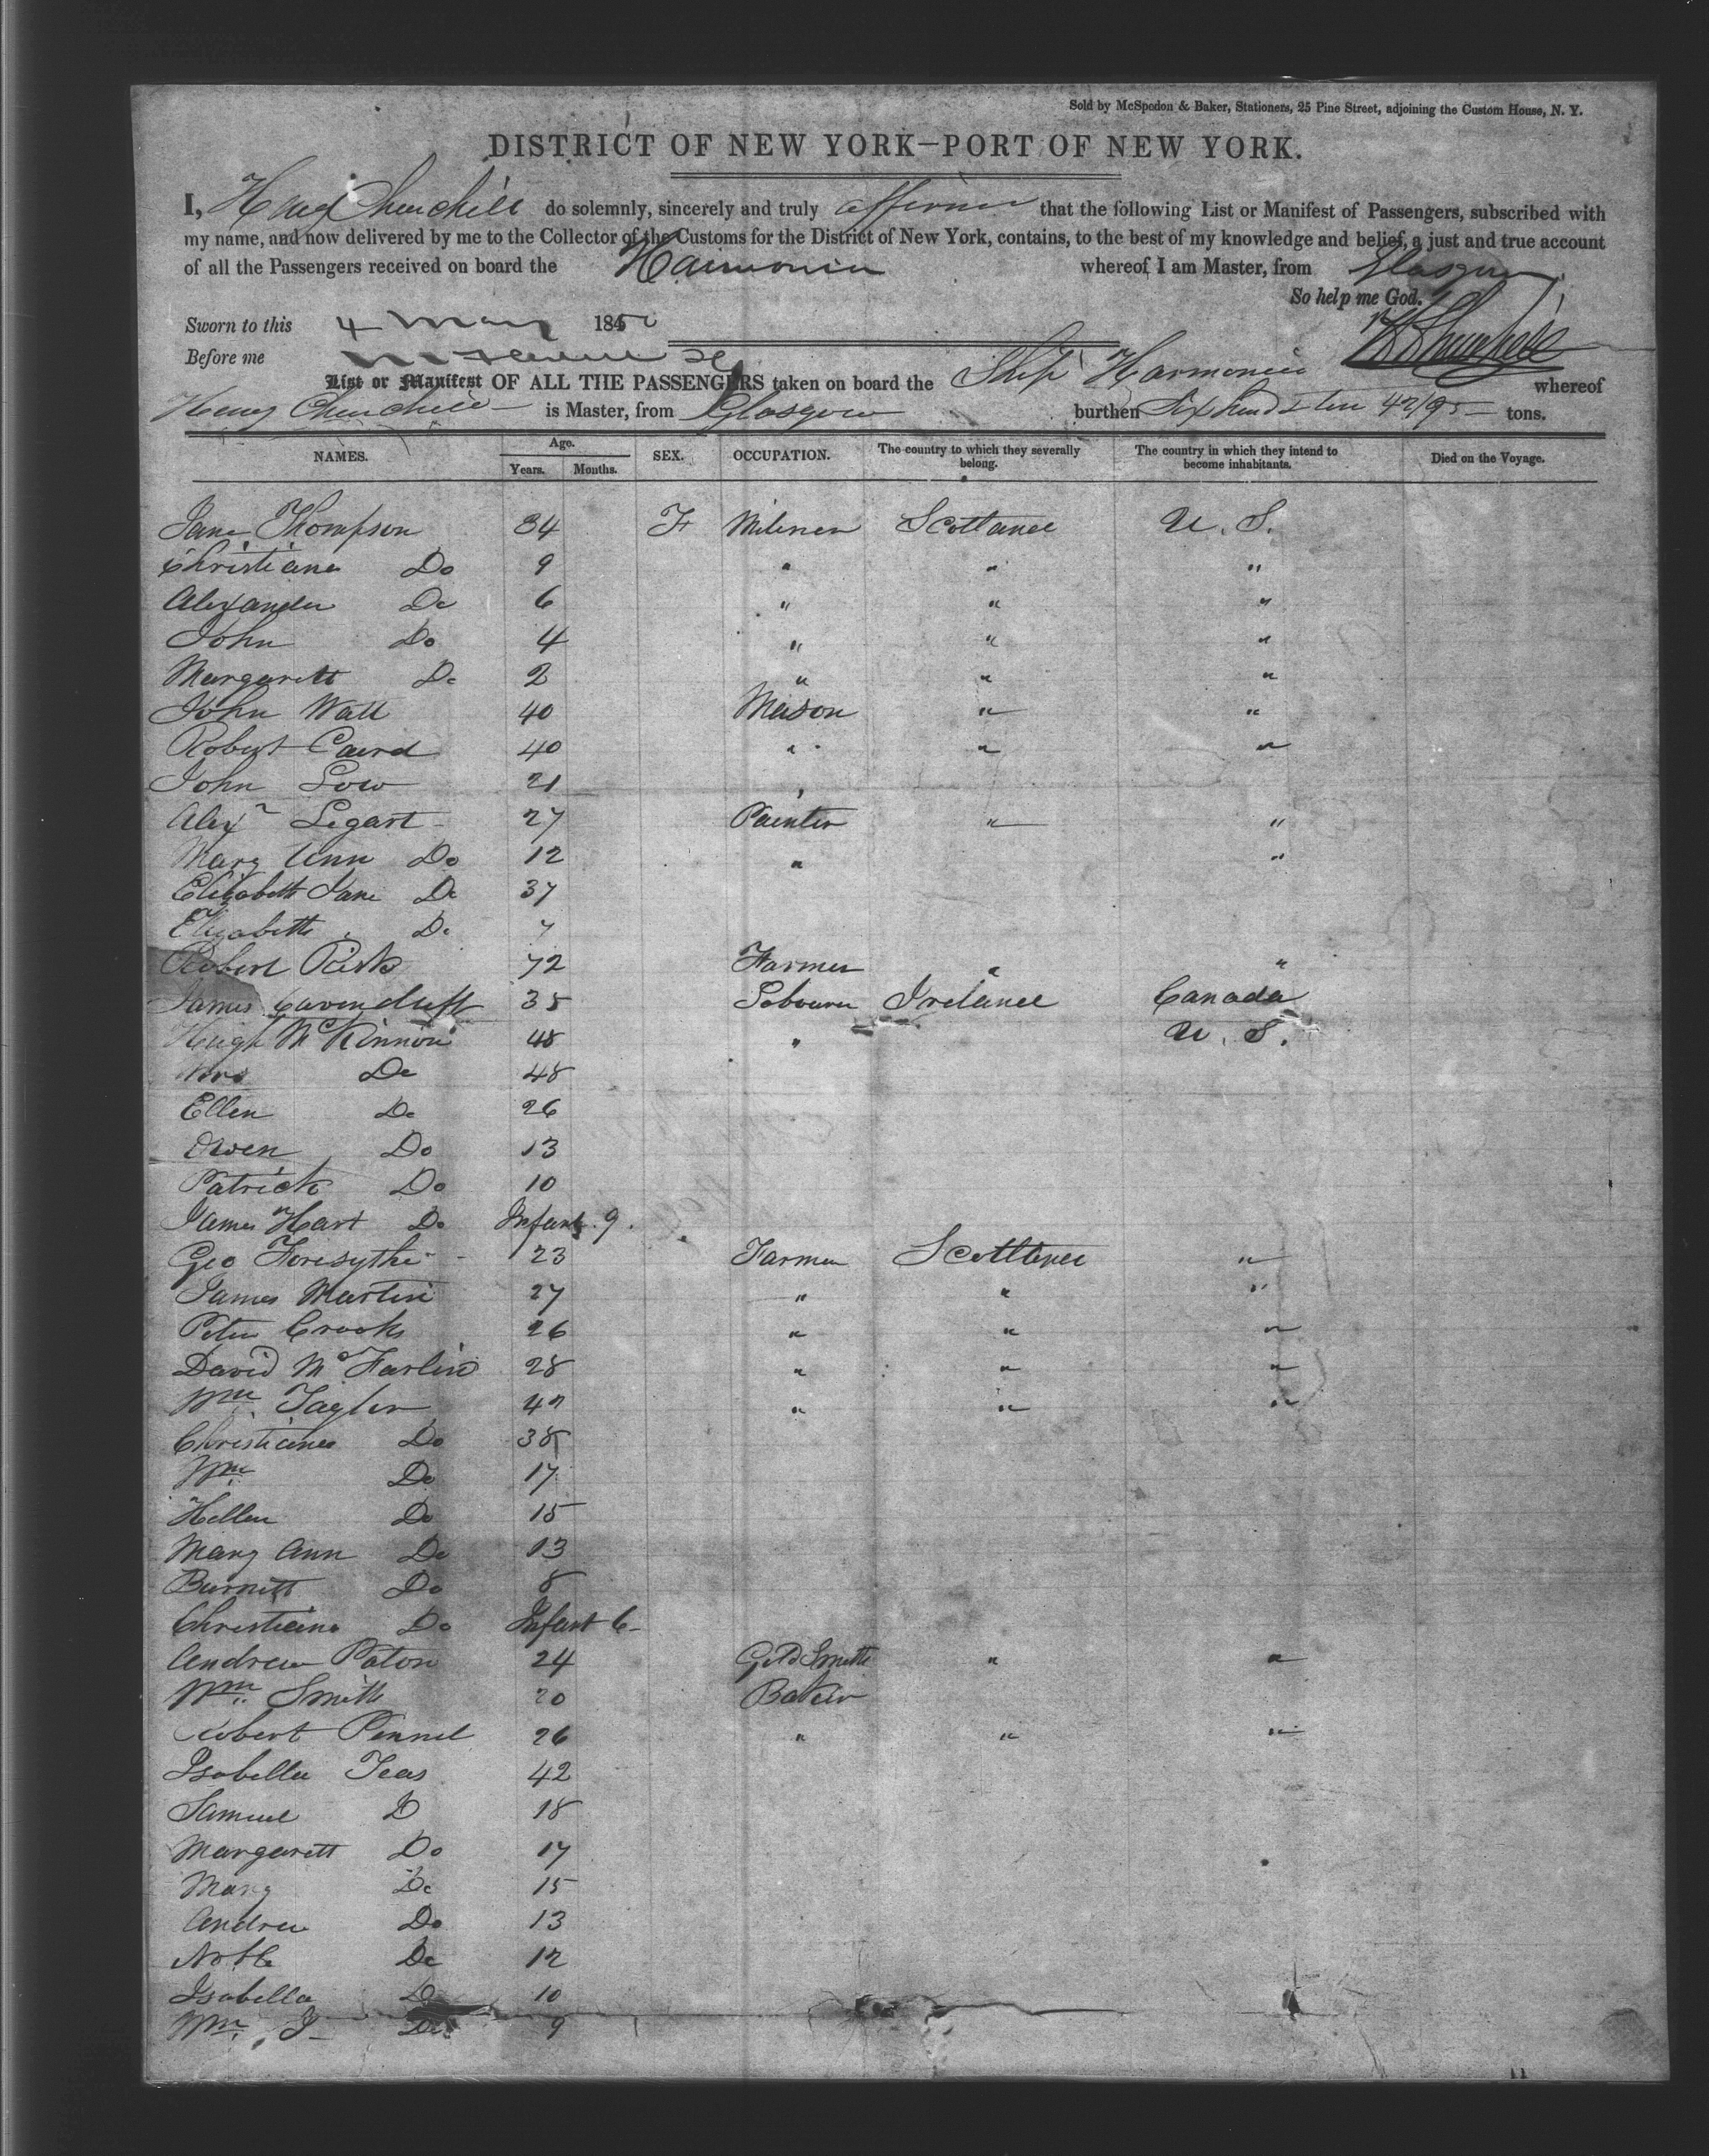 Sold by McSpedon & Baker, Stationers, 25 Pine Street, adjoining the Custom House, N. Y.
DISTRICT OF NEW YORK—PORT OF NEW YORK.
I, Henry Churchill do solemnly, sincerely and truly affirm that the following List or Manifest of Passengers, subscribed with
my name, and now delivered by me to the Collector of the Customs for the District of New York, contains, to the best of my knowledge and belief, a just and true account
of all the Passengers received on board the Harmonia whereof I am Master, from Glasgow
So help me God.
Sworn to this 4 May 1850 H Churchill
Before me
List or Manifest OF ALL THE PASSENGERS taken on board the Ship Harmonia whereof
Henry Churchill is Master, from Glasgow burthen Six hund & ten 42/95 tons.
NAMES. Age. Years. Months. SEX. OCCUPATION. The country to which they severally belong. The country in which they intend to become inhabitants. Died on the Voyage.
Jane Thompson 34 F Milener Scotland U. S.
Christiana Do 9 " " "
Alexander Do 6 " " "
John Do 4 " " "
Margarett Do 2 " " "
John Watt 40 Mason " "
Robert Caird 40 " " "
John Low 21
Alexr Legart 27 Painter " "
Mary Ann Do 12 " "
Elizabeth Jane Do 37
Elizabeth Do 7
Robert Park 72 Farmer " "
James 35 Labourer Ireland Canada
Hugh McKinnon 48 " U. S.
Mrs Do 48
Ellen Do 26
Owen Do 13
Patrick Do 10
James Hart Do Infant 9
Geo Foresythe 23 Farmer Scotland "
James Martin 27 " " "
Peter Crooks 26 " " "
David McFarlin 28 " " "
Wm Taylor 42 " " "
Christiana Do 38
Wm Do 17
Hellen Do 15
Mary Ann Do 13
Burnett Do 8
Christiana Do Infant 6
Andrew Paton 24 Gold Smith " "
Wm Smith 20 Baker
Robert Pennel 26 " " "
Isabella Teas 42
Samuel D 18
Margarett Do 17
Mary Do 15
Andrew Do 13
Noble Do 12
Isabella D 10
Wm J Do 9